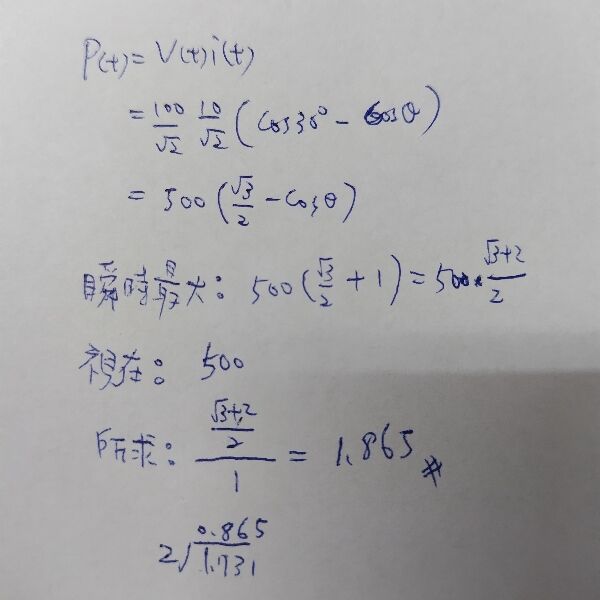 P(t) = V(t)i(t)
= 100/√2 10/√2 (cos30° - cosθ)
= 500 (√3/2 - cosθ)
瞬時最大: 500 (√3/2 + 1) = 500 · √3+2/2
視在: 500
所求: (√3+2/2)/1 = 1.865 #
0.865
2√1.731